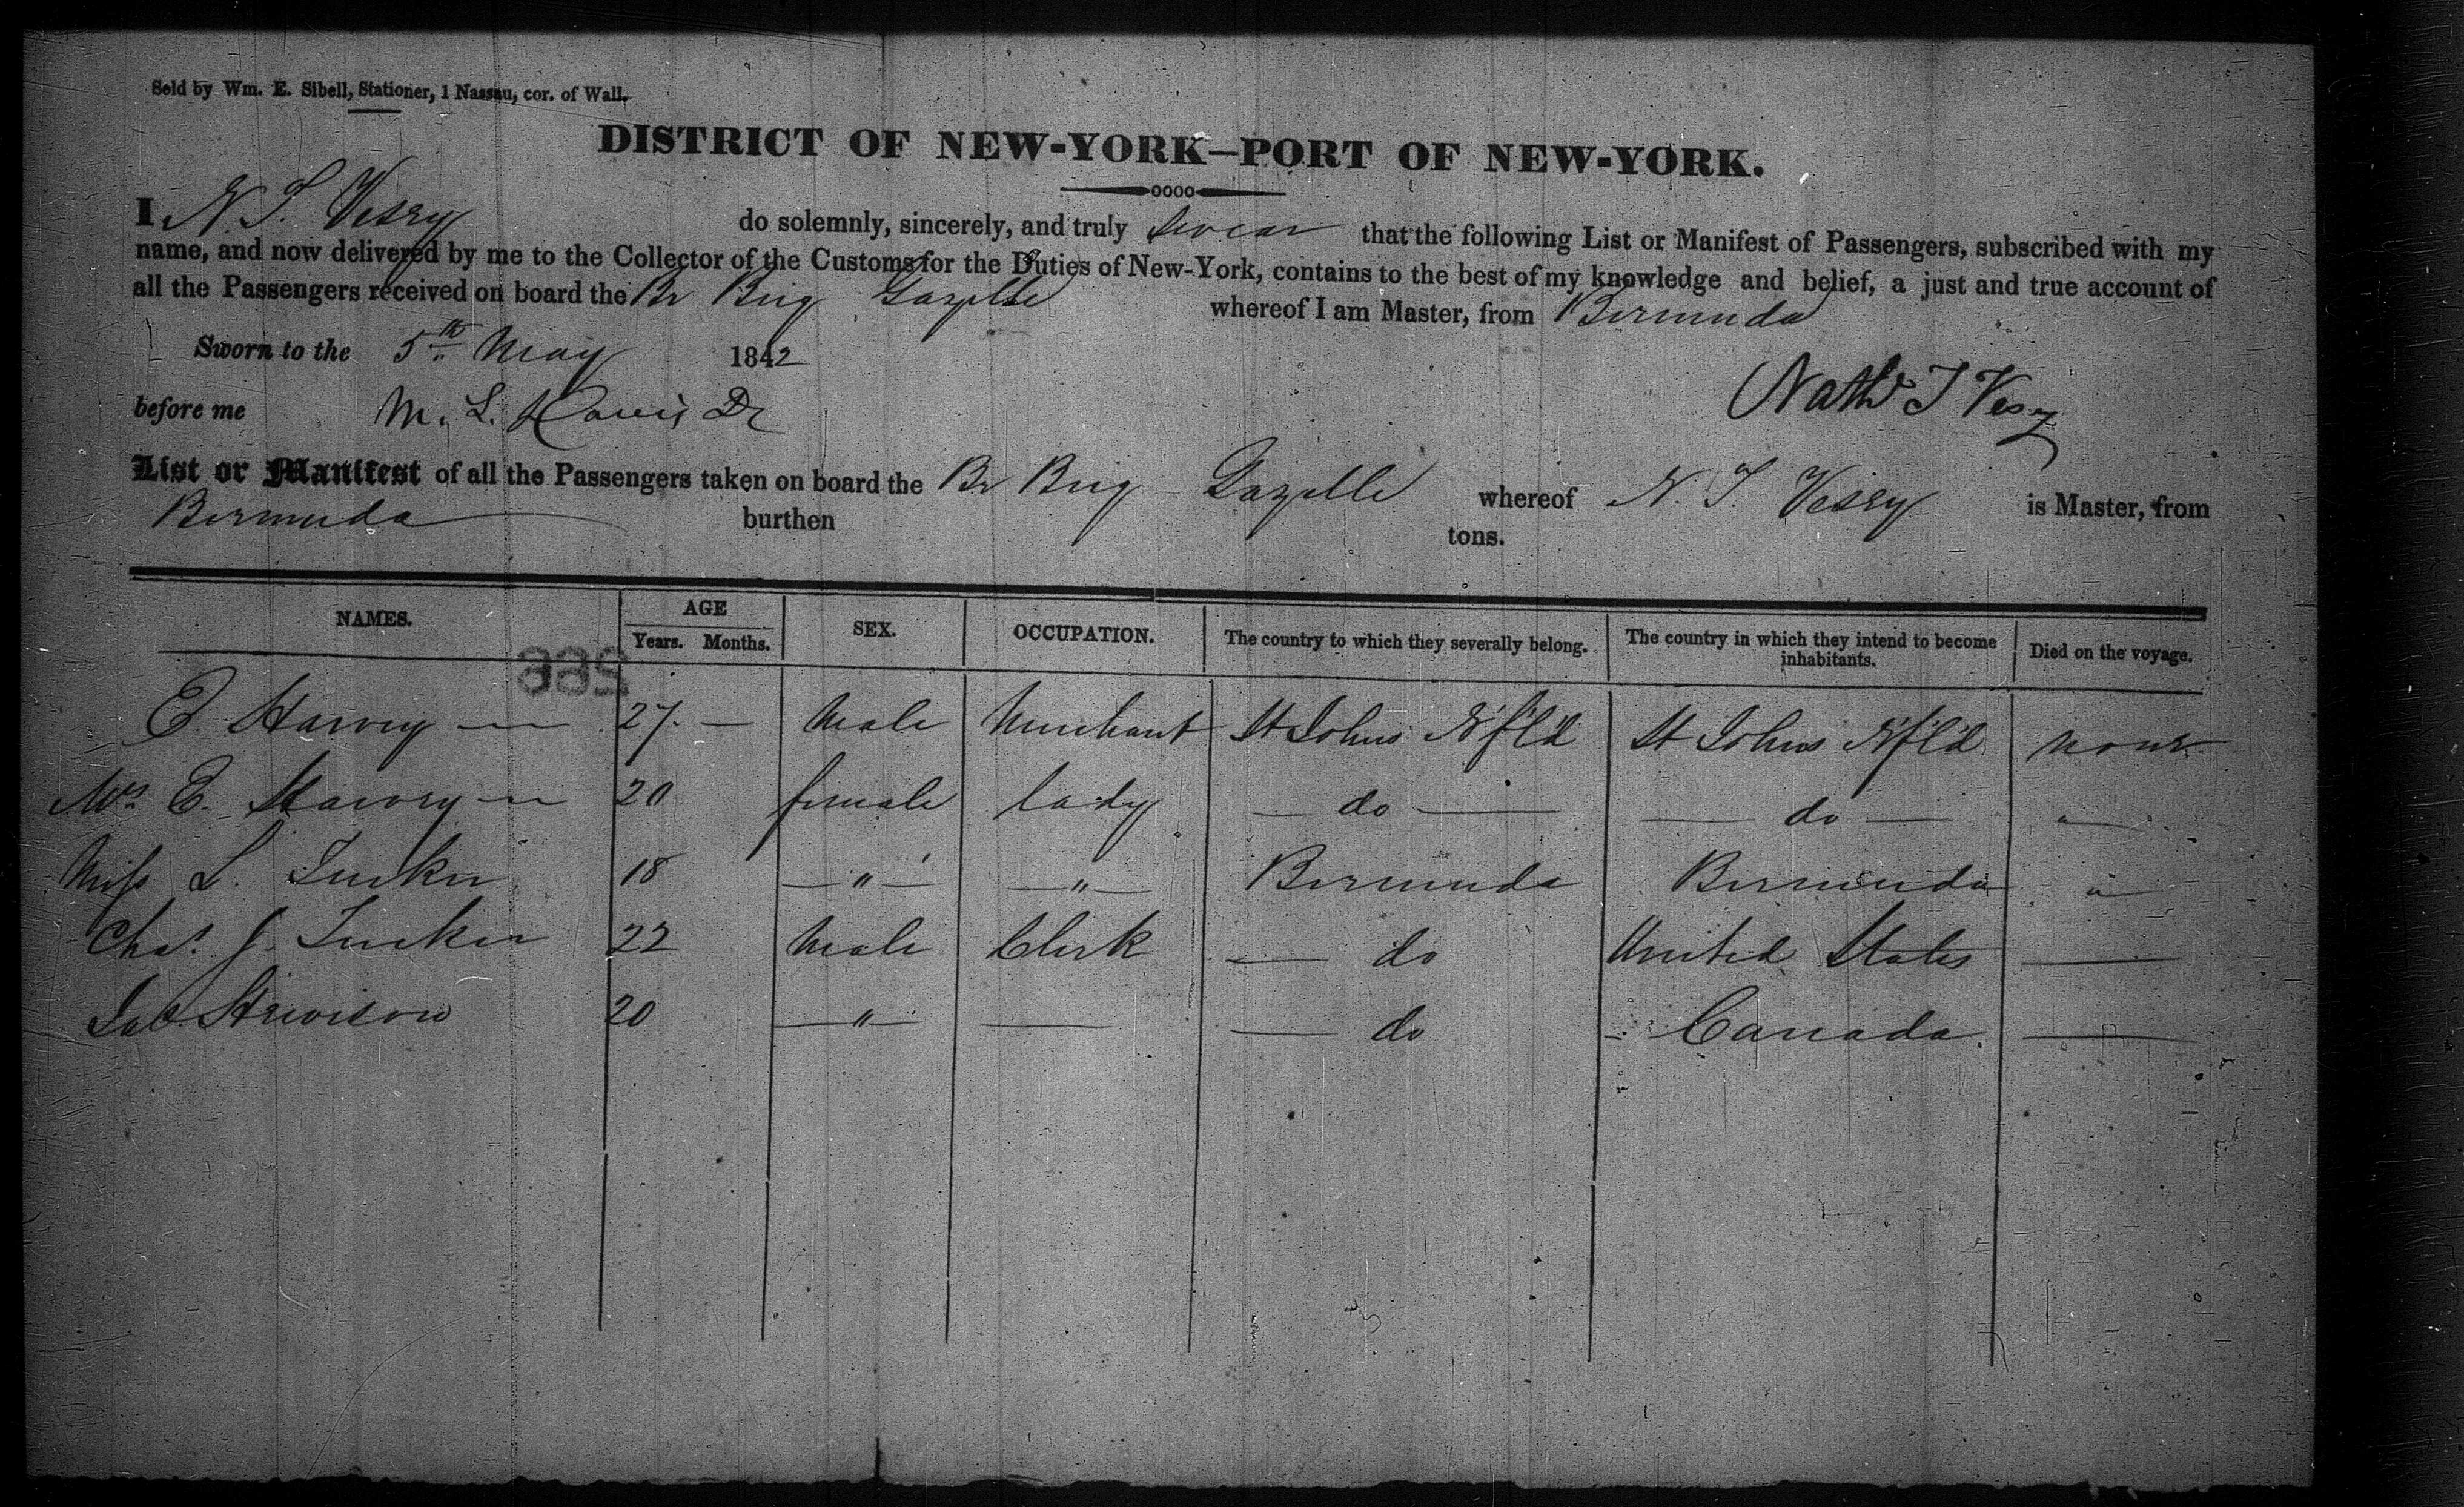 Sold by Wm. E. Sibell, Stationer, 1 Nassau, cor. of Wall.
DISTRICT OF NEW-YORK—PORT OF NEW-YORK.
I N. T. Vesey do solemnly, sincerely, and truly swear that the following List or Manifest of Passengers, subscribed with my
name, and now delivered by me to the Collector of the Customs for the Duties of New-York, contains to the best of my knowledge and belief, a just and true account of
all the Passengers received on board the Br Brig Gazelle whereof I am Master, from Bermuda
Sworn to the 5th May 1842
before me M. L. Davis Nath T Vesey
List or Manifest of all the Passengers taken on board the Br Brig Gazelle whereof N. T. Vesey is Master, from
Bermuda burthen tons.
NAMES. AGE Years. Months. SEX. OCCUPATION. The country to which they severally belong. The country in which they intend to become inhabitants. Died on the voyage.
E. Harvey — 27 — Male Merchant St Johns Nfld St Johns Nfld none
Mrs E. Harvey — 20 female lady — do — — do — "
Miss L. Tucker 18 — " — — " — Bermuda Bermuda "
Chas. J. Tucker 22 Male Clerk — do United States —
20 — " — — — do Canada. —